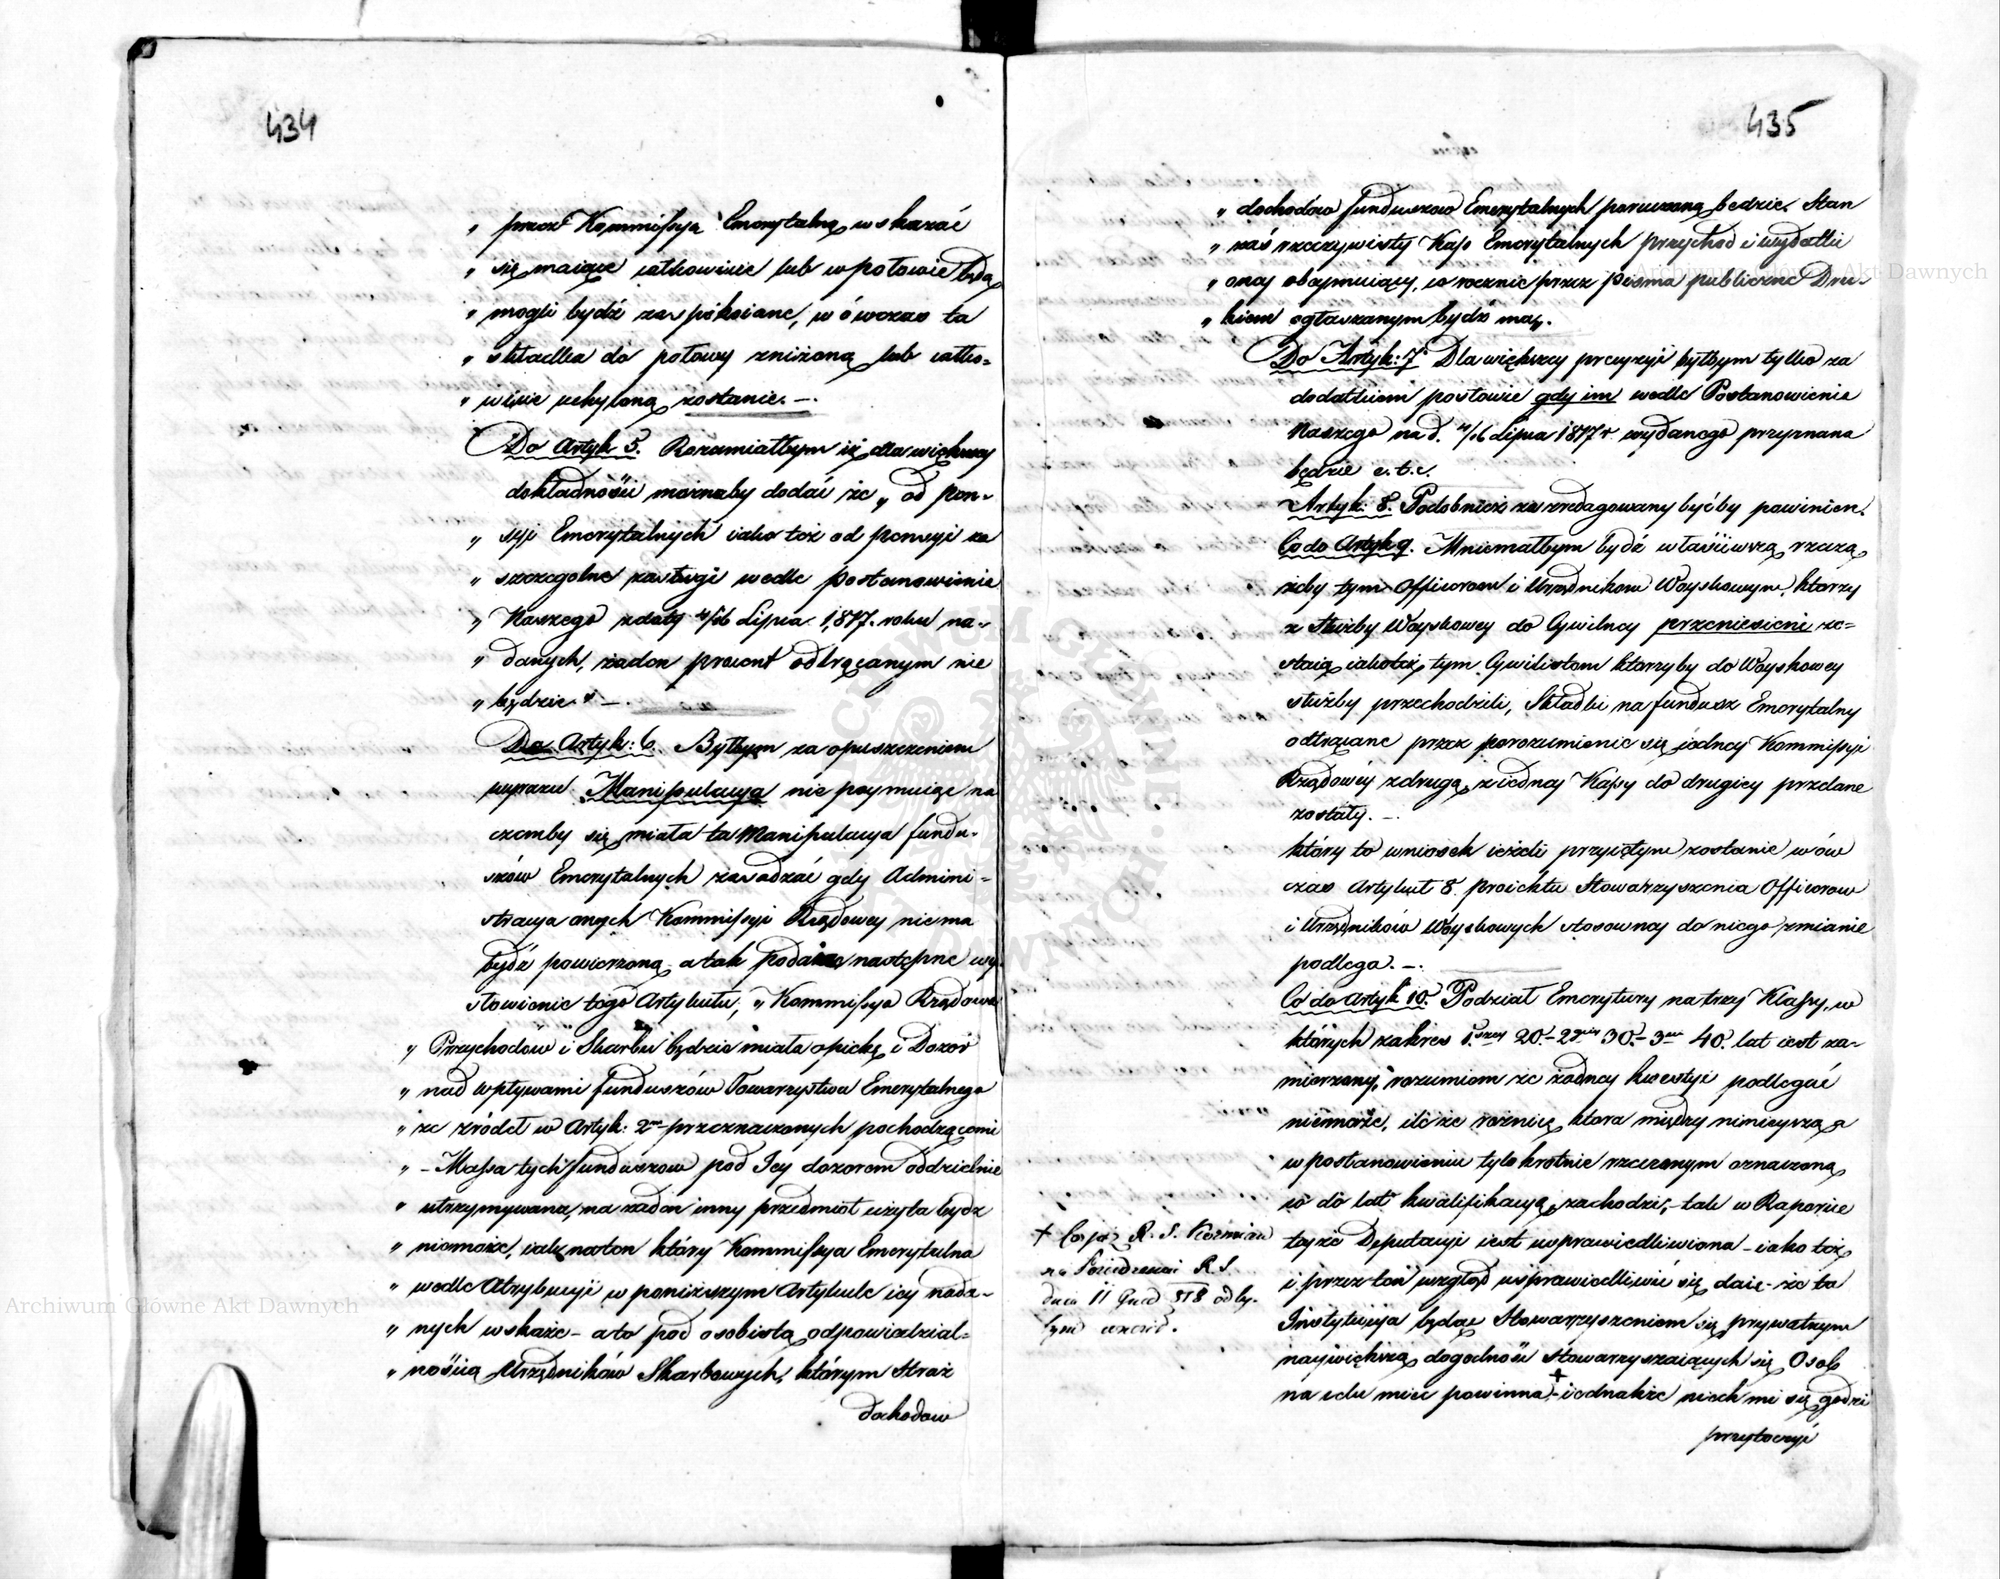 434
„ przez Kommissyą Emerytalną wskazać
„ się maiące całkowicie lub w połowie będą
„ mogli bydź zaspokoiane, wówczas ta
„ składka do połowy zniżoną lub całko-
„ wicie uchyloną zostanie. —.
Do Artyk 5. Rozumiałbym iż dla większey
dokładności możnaby dodać że „ od pen-
„ syi Emerytalnych iako też od pensyi za
„ szczegolne zasługi wedle postanowienia
„ Naszego z daty 4/16 Lipca 1,817. roku na-
„ danych, żaden procent odtrącanym nie
„ będzie " —.
Do Artyk: 6. Byłbym za opuszczeniem
wyrazu Manipulacya nie poymuiąc na
czemby się miała ta Manipulacya fundu-
szów Emerytalnych zasadzać gdy Admini-
stracya onych Kommissyi Rządowey niema
bydź powierzoną a tak podaię następne wy-
słowienie tego Artykułu, „ Kommissya Rządowa
„ Przychodów i Skarbu będzie miała opiekę i Dozór
„ nad wpływami funduszów Towarzystwa Emerytalnego
„ ze źródeł w Artyk: 2m przeznaczonych pochodzącemi
„ – Massa tych funduszow pod Jey dozorem oddzielnie
„ utrzymywana, na żaden inny przedmiot użyta bydź
„ niemoże, iak na ten który Kommissya Emerytalna
„ wedle Atrybucyi w poniższym Artykule iey nada-
„ nych wskaże – a to pod osobistą odpowiedzial-
„ nością Urzędników Skarbowych, którym Straż
dochodow
435
„ dochodów funduszow Emerytalnych poruczoną będzie. Stan
„ zaś rzeczywisty Kass Emerytalnych przychod i wydatki
„ onej obeymuiący, co rocznie przez pisma publiczne Dru-
„ kiem ogłaszanym bydź ma.
Do Artyk: 7. Dla większey precyzyi byłbym tylko za
dodatkiem po słowie gdy im wedle Postanowienia
Naszego na d. 4/16 Lipca 1817 r wydanego przyznana
będzie e. t. c.
Artyk: 8. Podobnież zaredagowany być by powinien.
Co do Artyk 9. Mniemałbym bydź właściwszą rzeczą
żeby tym Officerom i Urzędnikom Woyskowym, ktorzy
z służby Woyskowey do Cywilney przeniesieni zo=
staią iakoteż tym Cywilistom ktorzyby do Woyskowey
służby przechodzili, składki na fundusz Emerytalny
odtrącane przez porozumienie się iedney Kommissyi
Rządowéy z drugą, z iedney Kassy do drugiey przelane
zostały. —.
który to wniosek ieżeli przyiętym zostanie wów
czas Artykuł 8. proiektu Stowarzyszenia Officerow
i Urzędników Woyskowych stosowney do niego zmianie
podlega. —.
Co do Artyk 10. Podział Emerytury na trzy Klassy, w
których zakres 1.szey 20.– 2giey 30.– 3ey 40. lat iest za-
mierzony, rozumiem że żadney kwestyi podlegać
niemoże, ileże rożnicę ktora między nimi
w postanowieniu tylokrotnie rzeczonym oznaczoną
co do lat kwalifikacyą zachodzi, – tak w Raporcie
teyże Deputacyi iest usprawiedliwiona – iako też
i przez ten wzgląd usprawiedliwić się daie – że ta
Instytucya będąc Stowarzyszeniem się prywatnym
naywiększą dogodność stowarzyszaiących się Osob
na celu mieć powinna + – iednakże niech mi się godzi
przytoczyć
+ R. S. Kozmian
na Posiedzeniu R. S.
dnia 11 818 odby-
tym